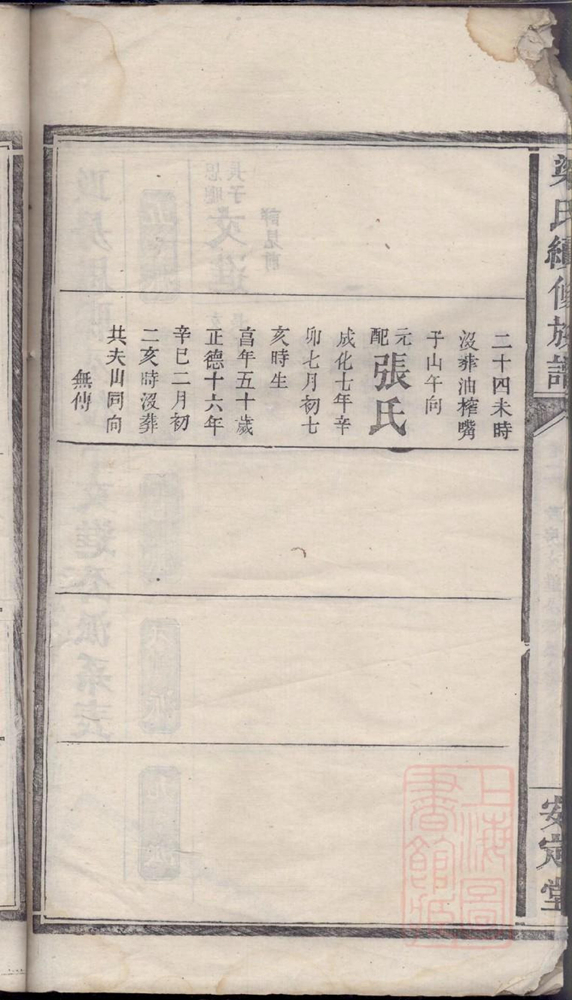 梁氏續修族譜
二十四未時
沒葬油榨嘴
子山午向
元配張氏
成化七年辛
卯七月初七
亥時生
享年五十歲
正德十六年
辛巳二月初
二亥時沒葬
共夫山同向
無傳
安定堂
上海圖書館藏